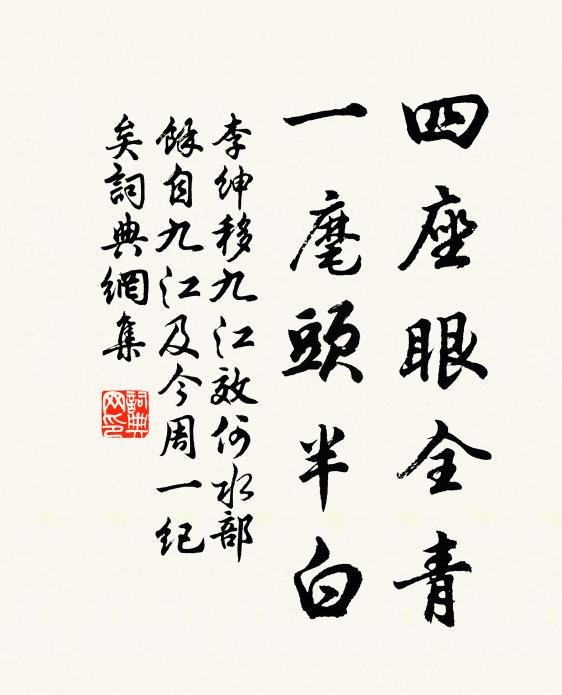 四座眼全青
一麾頭半白
李紳移九江效何水部
餘自九江及今周一紀
矣詞典網集
詞典网印